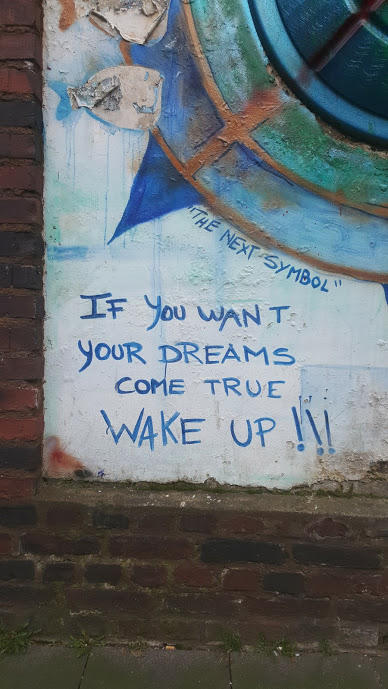 "THE NEXT SYMBOL"
IF YOU WANT
YOUR DREAMS
COME TRUE
WAKE UP !!!